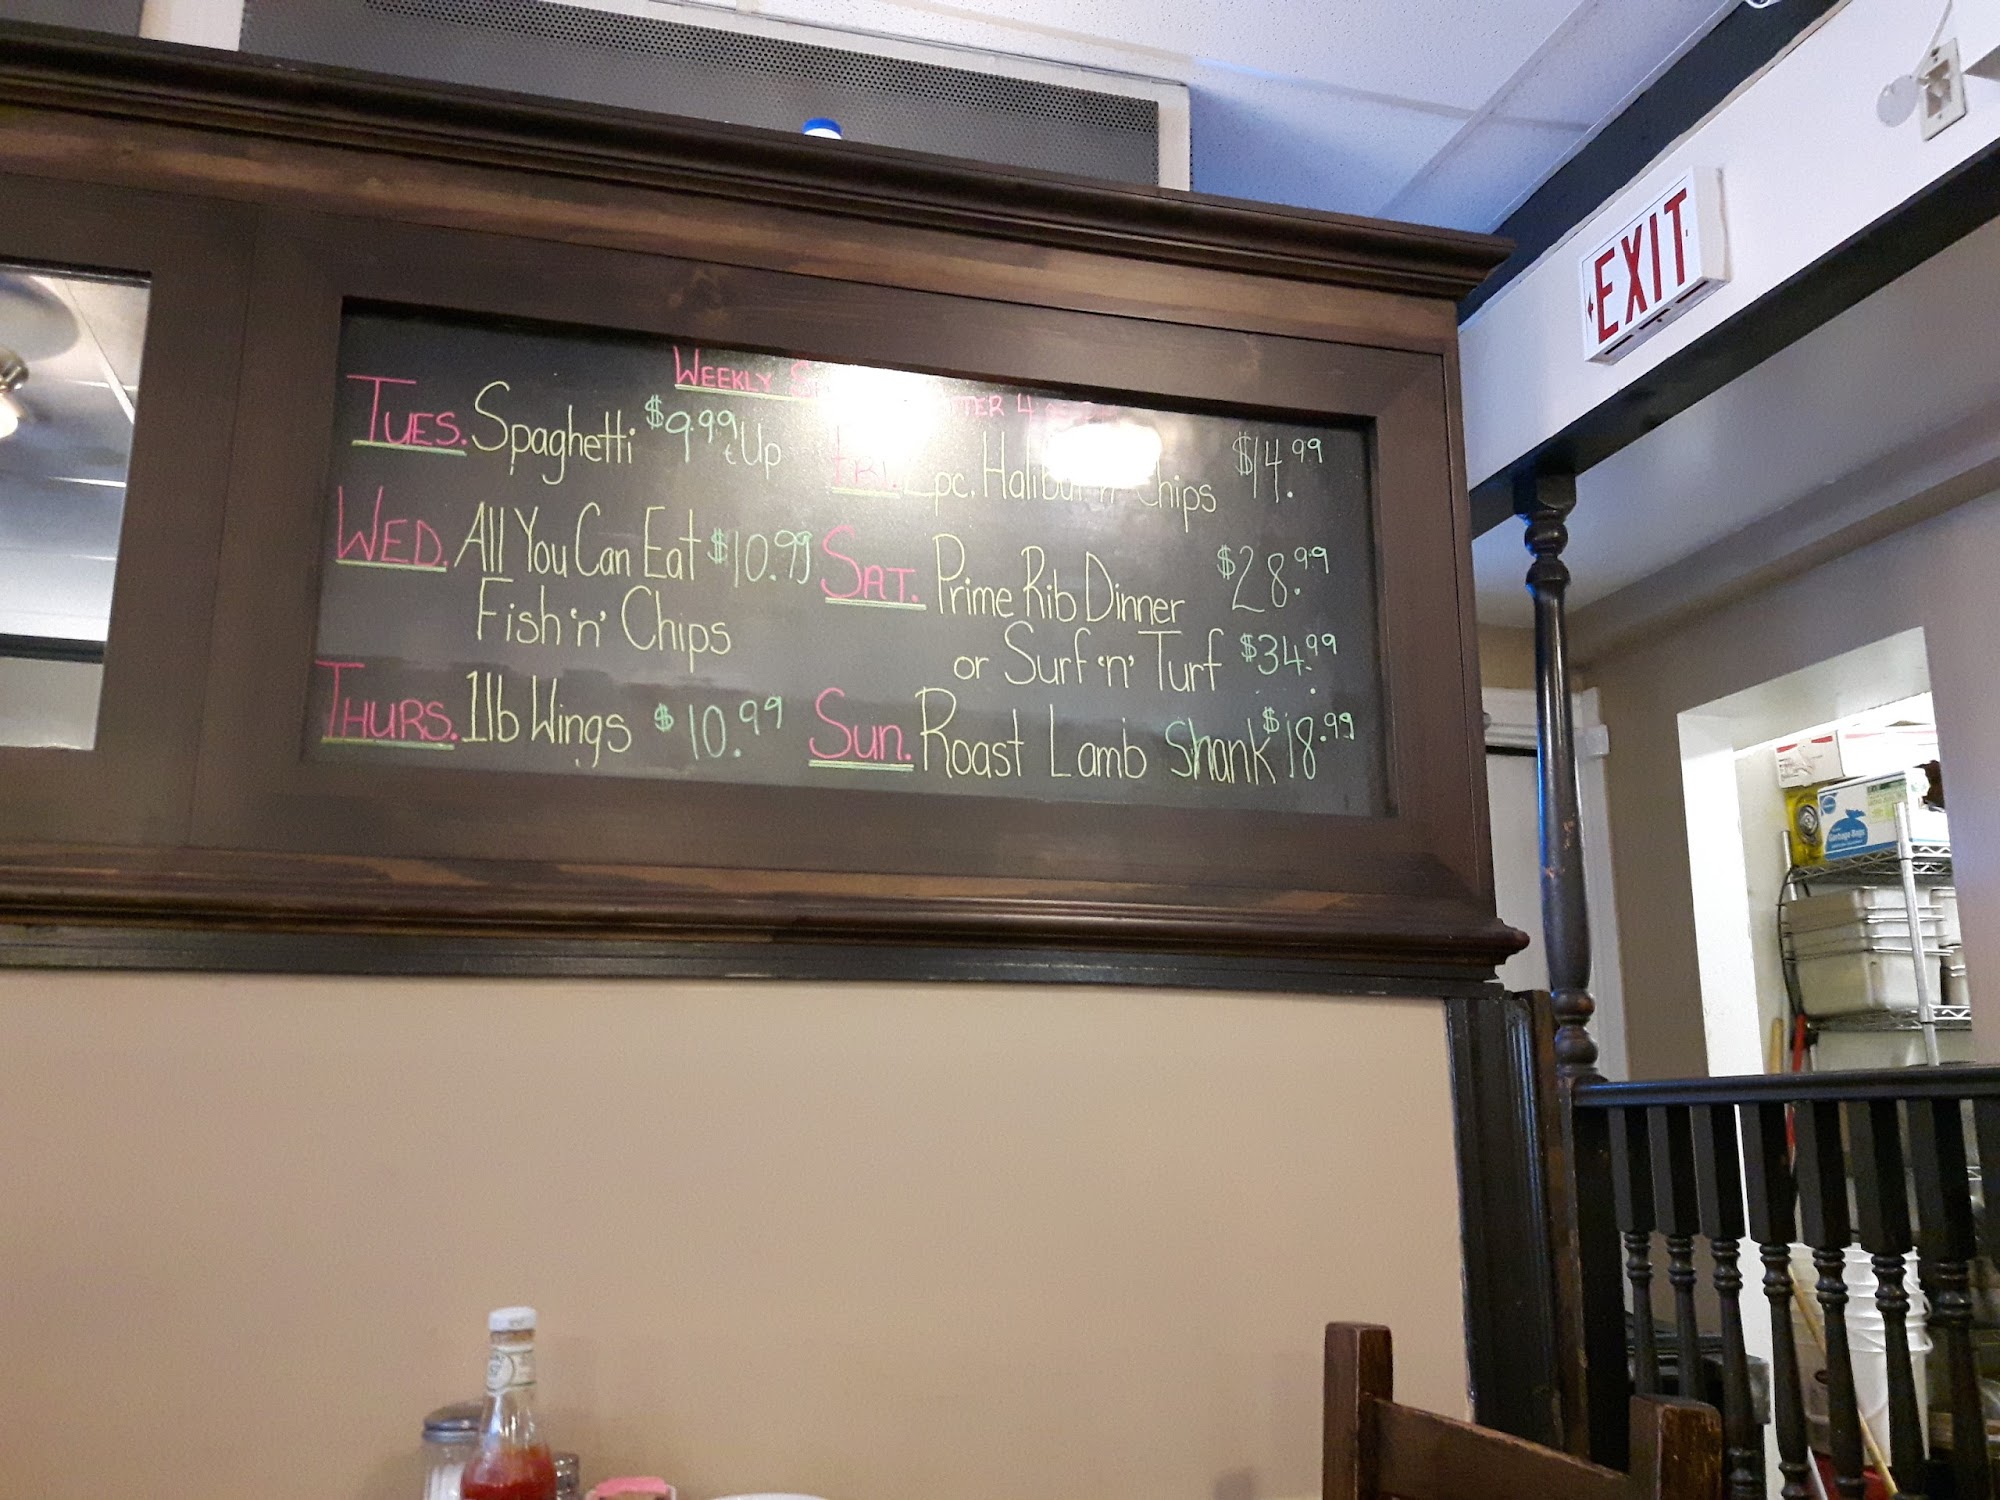 WEEKLY
TUES. Spaghetti $9.99 & Up
WED. All You Can Eat $10.99
Fish 'n' Chips
THURS. 1lb Wings $10.99
FRI. 2pc. Halibut 'n' Chips $14.99
SAT. Prime Rib Dinner $28.99
or Surf 'n' Turf $34.99
SUN. Roast Lamb Shank $18.99
EXIT
Garbage Bags